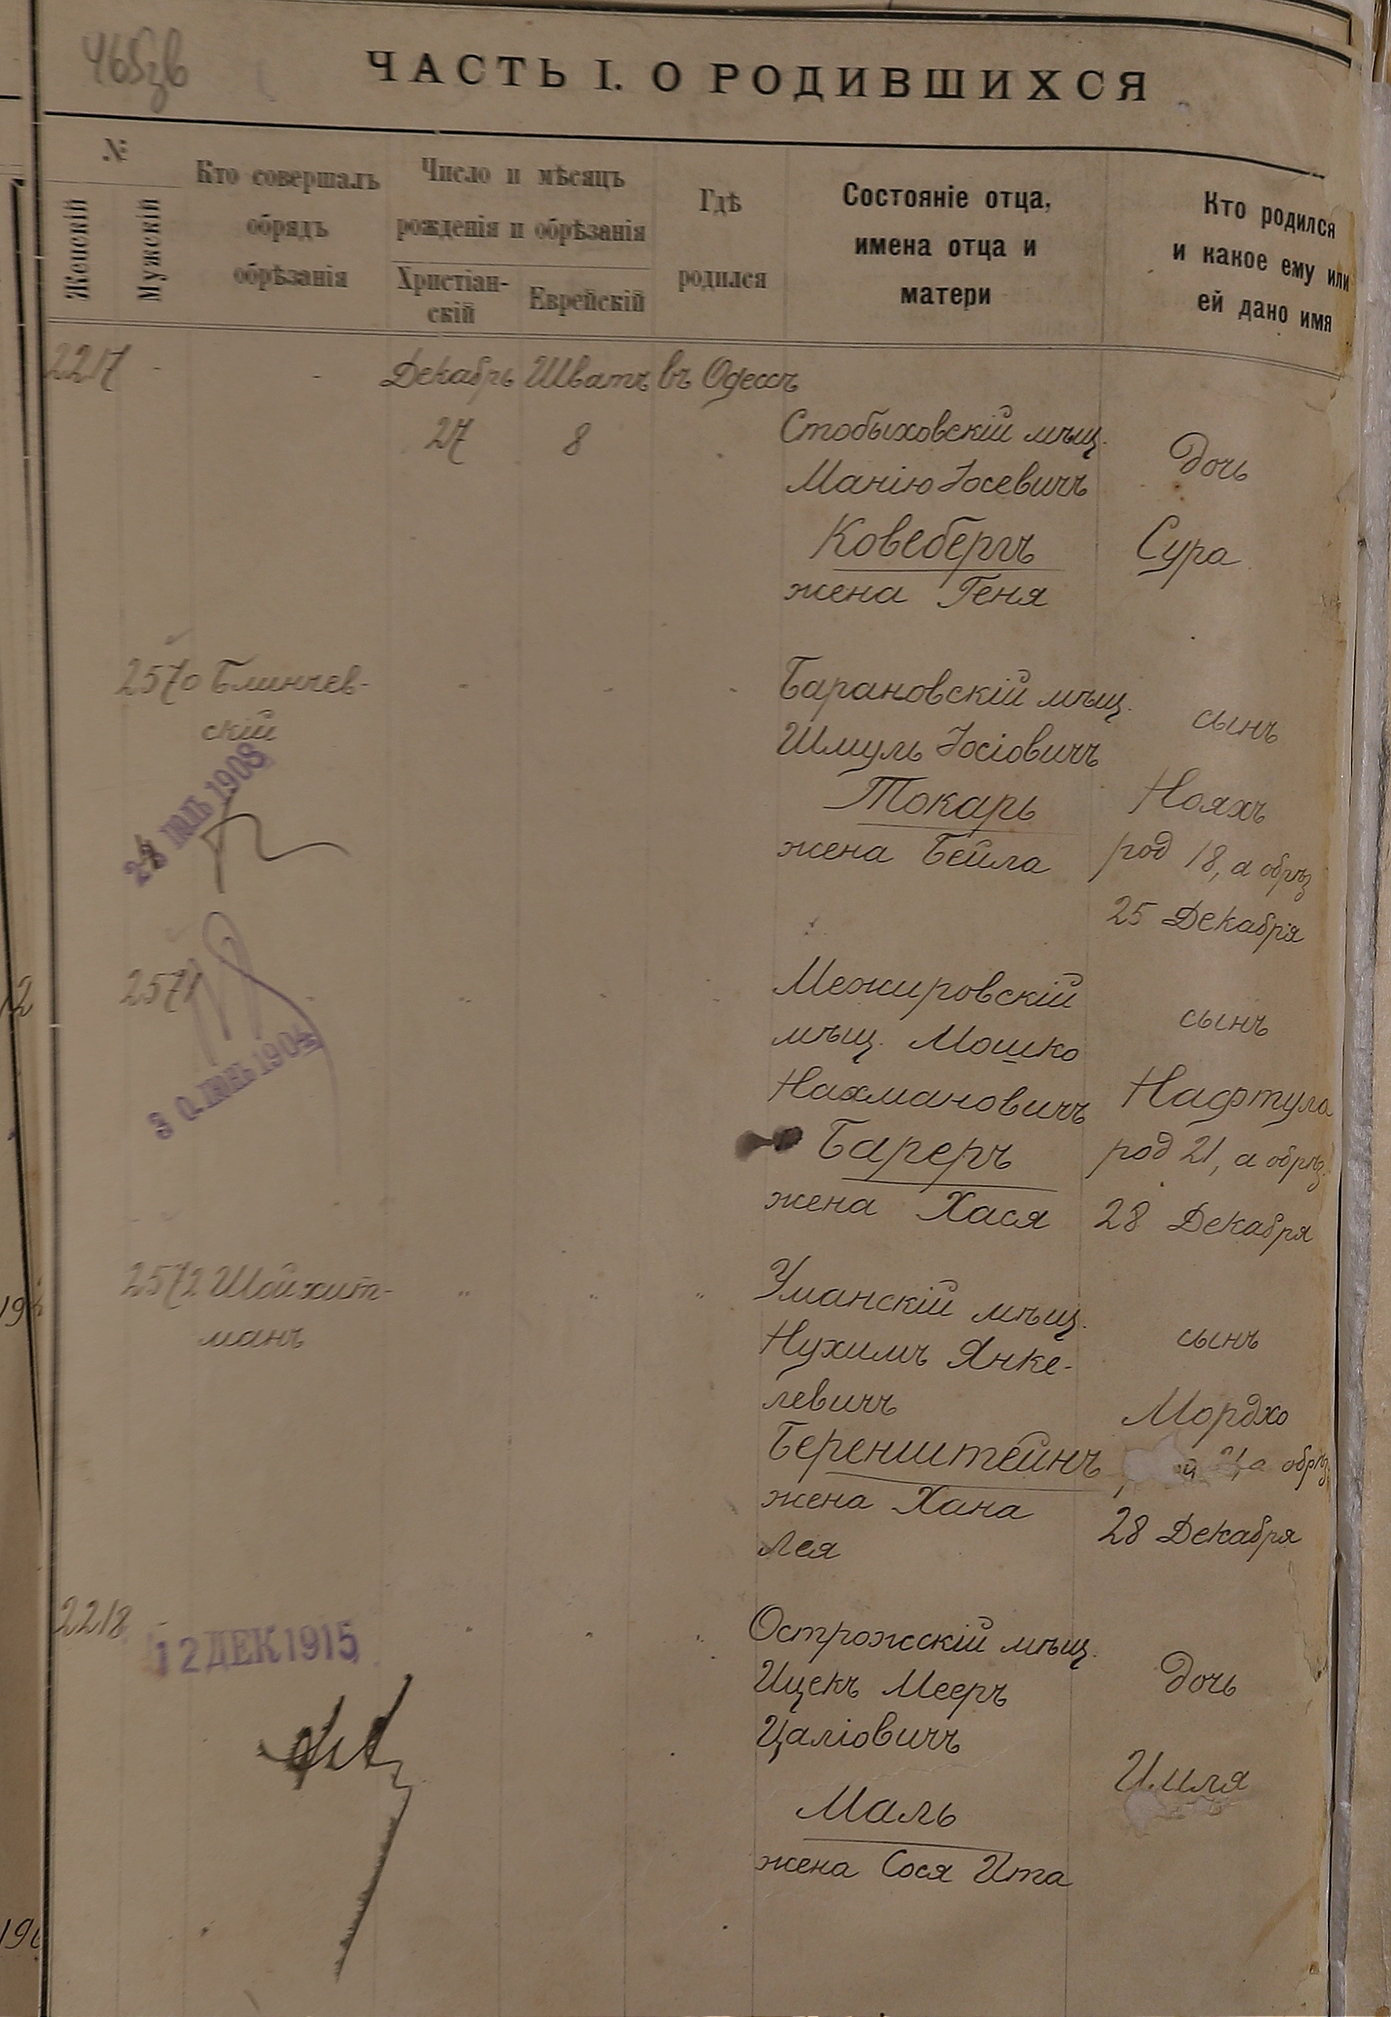 465зв
ЧАСТЬ I. О РОДИВШИХСЯ
№
Женскій
Мужскій
Кто совершалъ
обрядъ
обрѣзанія
Число и мѣсяцъ
рожденія и обрѣзанія
Христіан-
скій
Еврейскій
Гдѣ
родился
Состояніе отца,
имена отца и
матери
Кто родился
и какое ему или
ей дано имя
2217 - - Декабрь Шватъ въ Одессѣ
27 8
Стобыховскій мѣщ.
Манію Іосевичъ
Ковебергъ
жена Геня
дочь
Сура
2570 Блинчев-
скій
ІЮЛЬ 1908
Барановскій мѣщ.
Шмуль Іосіовичъ
Токарь
жена Бейла
сынъ
Нояхъ
род 18, а обрѣз
25 Декабря
2571
30. ІЮНЬ 1904
Межировскій
мѣщ. Мошко
Нахмановичъ
Бареръ
жена Хася
сынъ
Нафтула
род 21, а обрѣз.
28 Декабря
2572 Шойхит-
манъ
Уманскій мѣщ.
Нухимъ Янке-
левичъ
Беренштейнъ
жена Хана
Лея
сынъ
Мордко
а обрѣз
28 Декабря
2218
12 ДЕК 1915
Острожскій мѣщ.
Ицекъ Мееръ
Цаліовичъ
Маль
жена Сося Ита
дочь
12
190